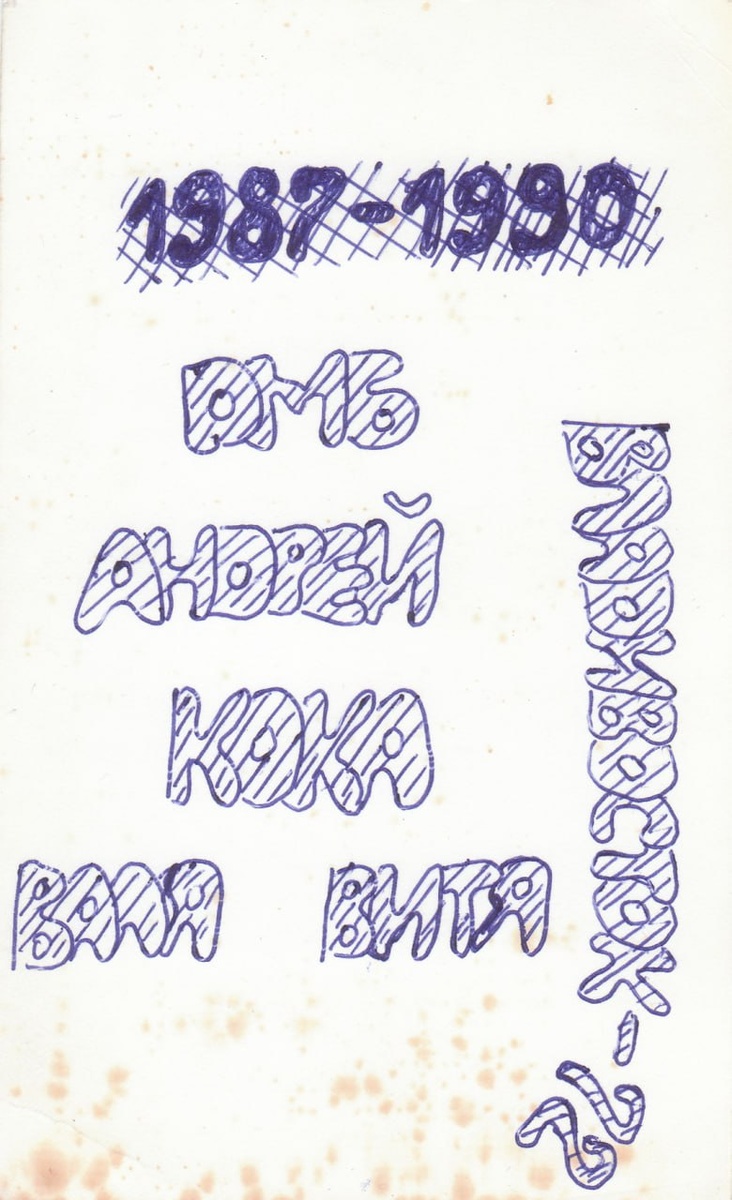 1987-1990
ДМБ
АНДРЕЙ
КОКА
ВАЛЯ ВИТЯ
ВЛАДИВОСТОК-22